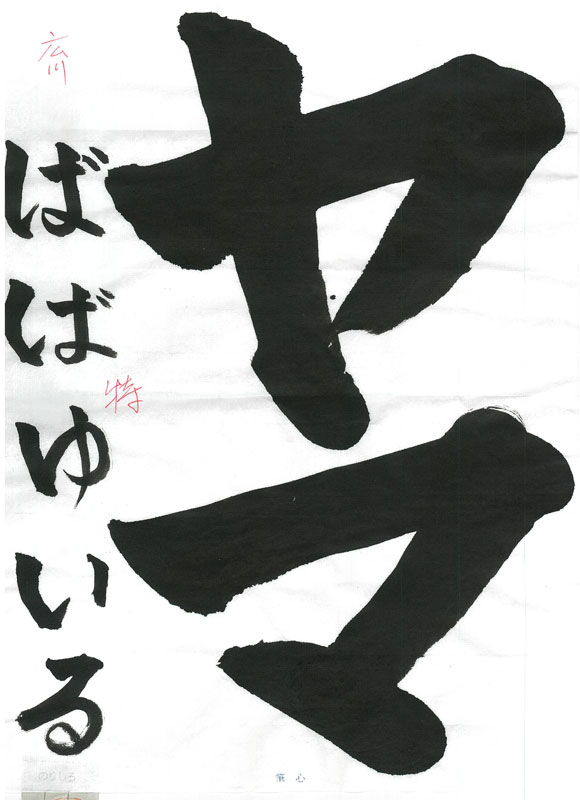 ヤマ
広川
ばばゆいる
特
筆心
のりしろ